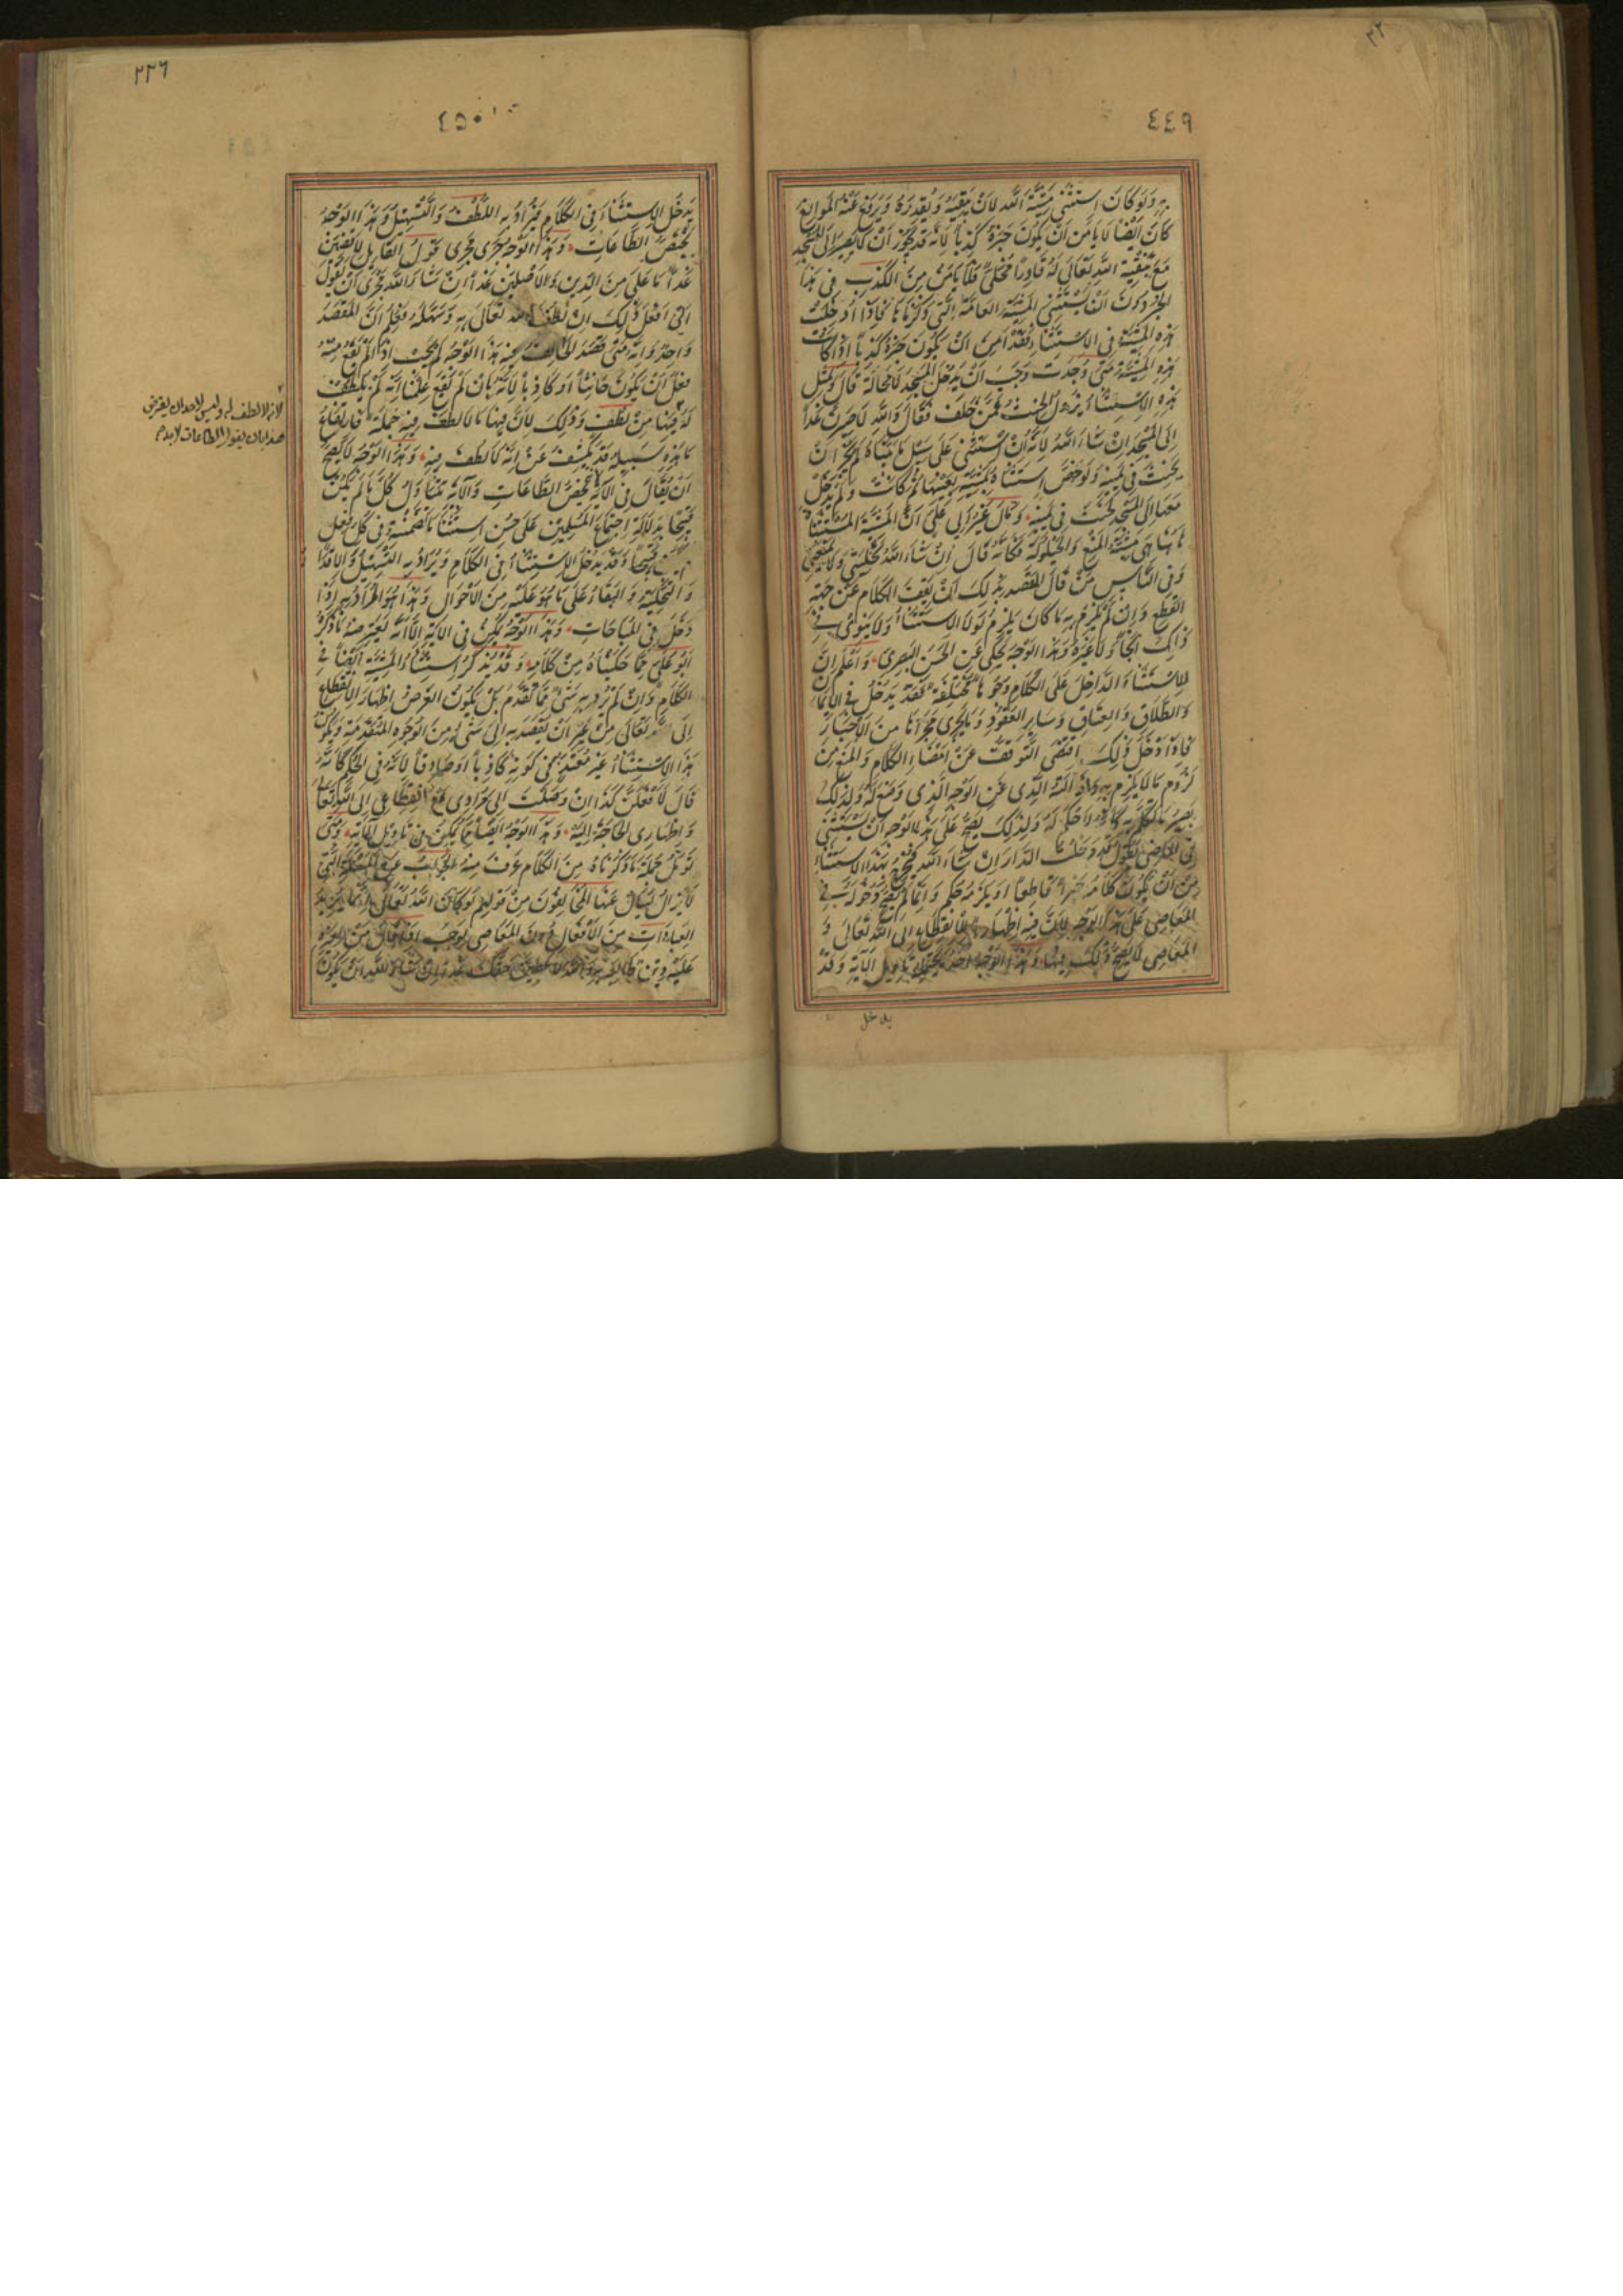 ٣٢
٤٤٩
به ولو كان استثنى مشية الله لان يبقيه ويقدره ويرفع عنه الموانع
كان ايضا لا يامن ان يكون خبره كذبا لانه قد يجوز ان لا يصير الى المسجد
مع تبقية الله تعالى له قادرا مخلى فلا يامن من الكذب في هذا
الخبر دون ان يستثنى المشية العامة التي ذكرناها فاذا دخلت
هذه المشية في الاستثناء فقد امن ان يكون خبره كذبا اذ كانت
هذه المشية متى وجدت وجب ان يدخل المسجد لا محالة قال وبمثل
هذا الاستثناء يزول الحنث عمن حلف فقال والله لاصيرن غدا
الى المسجد ان شاء الله لانه ان استثنى على سبيل ما بيناه لم يجز ان
يحنث في يمينه ولو خص استثناه بمشية بعينها ثم كانت ولم يدخل
معها الى المسجد لحنث في يمينه وقال غير ابي علي ان المشية المستثناة
هاهنا هي مشية المنع والحيلولة فكانه قال ان شاء الله يخليني ولا يمنعني
وفي الناس من قال القصد بذلك ان يقف الكلام عن جهة
القطع وان لم يلزم به ما كان يلزم لولا الاستثناء ولا ينوي في
ذلك الجاء ولا غيره وهذا الوجه يحكى عن الحسن البصري واعلم ان
للاستثناء الداخل على الكلام وجوها مختلفة فقد يدخل في الايمان
والطلاق والعتاق وساير العقود وما يجري مجراها من الاخبار
فاذا دخل ذلك اقتضى التوقف عن امضاء الكلام والمنع من
لزوم ما لا يلزم به وازالته الذي عن الوجه الذي وضع له ولذلك
يصير ما تكلم به كانه لا حكم له ولذلك يصح على هذا الوجه ان يستثنى
في الماضي فيقول قد دخلت الدار ان شاء الله فيخرج بهذا الاستثناء
من ان يكون كلامه خبرا قاطعا او يلزمه حكم وانما لم يصح دخوله في
المعاصي على هذا الوجه لان فيه اظهار الانقطاع الى الله تعالى و
المعاصي لا يصح ذلك فيها وهذا الوجه احد ما يحتمله تاويل الآية وقد
يدخل
٢٢٦
٤٥٠
يدخل الاستثناء في الكلام فيراد به اللطف والتسهيل وهذا الوجه
يختص الطاعات وهذا الوجه يجري مجرى قول القايل لاقضين
غدا ما علي من الدين ولاصلين غدا ان شاء الله فجرى ان يقول
اني افعل ذلك ان لطف الله تعالى به وسهله فعلم ان المقصد
واحد وانه متى قصد الحالف فيه هذا الوجه لم يحنث اذا لم يقع منه
فعل ان يكون حانثا او كاذبا لانه بان لم يقع علمنا انه لم يلطف
له فيها من لطف وذلك لان فيها ما لا لطف فيه جملة فارتفاع
ما هذه سبيله قد يكشف عن انه لا لطف فيه وهذا الوجه لا يصح
ان يقال في الآية لانه يختص الطاعات والآية تتناول كل ما لم يكن
قبيحا بدلالة اجماع المسلمين على حسن استثناء ما تضمنته في كل فعل
لم يكن قبيحا وقد يدخل الاستثناء في الكلام ويراد به التسهيل والاقدار
والتخلية والبقاء على ما هو عليه من الاحوال وهذا هو المراد به اذا
دخل في المباحات وهذا الوجه يمكن في الآية الا انه يعترضه ما ذكره
ابو علي مما حكيناه من كلامه وقد يذكر استثناء المشية ايضا في
الكلام وان لم يرد به شي مما تقدم بل يكون الغرض اظهار الانقطاع
الى الله تعالى من غير ان يقصد به الى شي من الوجوه المتقدمة ويكون
هذا الاستثناء غير معتد به في كونه كاذبا او صادقا لانه في الحكم كانه
قال لافعلن كذا ان وصلت الى مرادي مع انقطاعي الى الله تعالى
واظهاري الحاجة اليه وهذا الوجه ايضا مما يمكن في تاويل الآية ومتى
تؤمل جملة ما ذكرناه من الكلام عرف منه الجواب عن المسئلة التي
لا يزال يسال عنها المخالفون من قولهم لو كان الله تعالى انما يريد
العبادات من الافعال دون المعاصي لوجب اذا قال من لغيره
عليه دين طالبه به والله لاعطينك حقك غدا ان شاء الله ان يكون
لانه لا لطف له وليس لاحد ان يعترض
هذا بان يقول الطاعات لا بد م